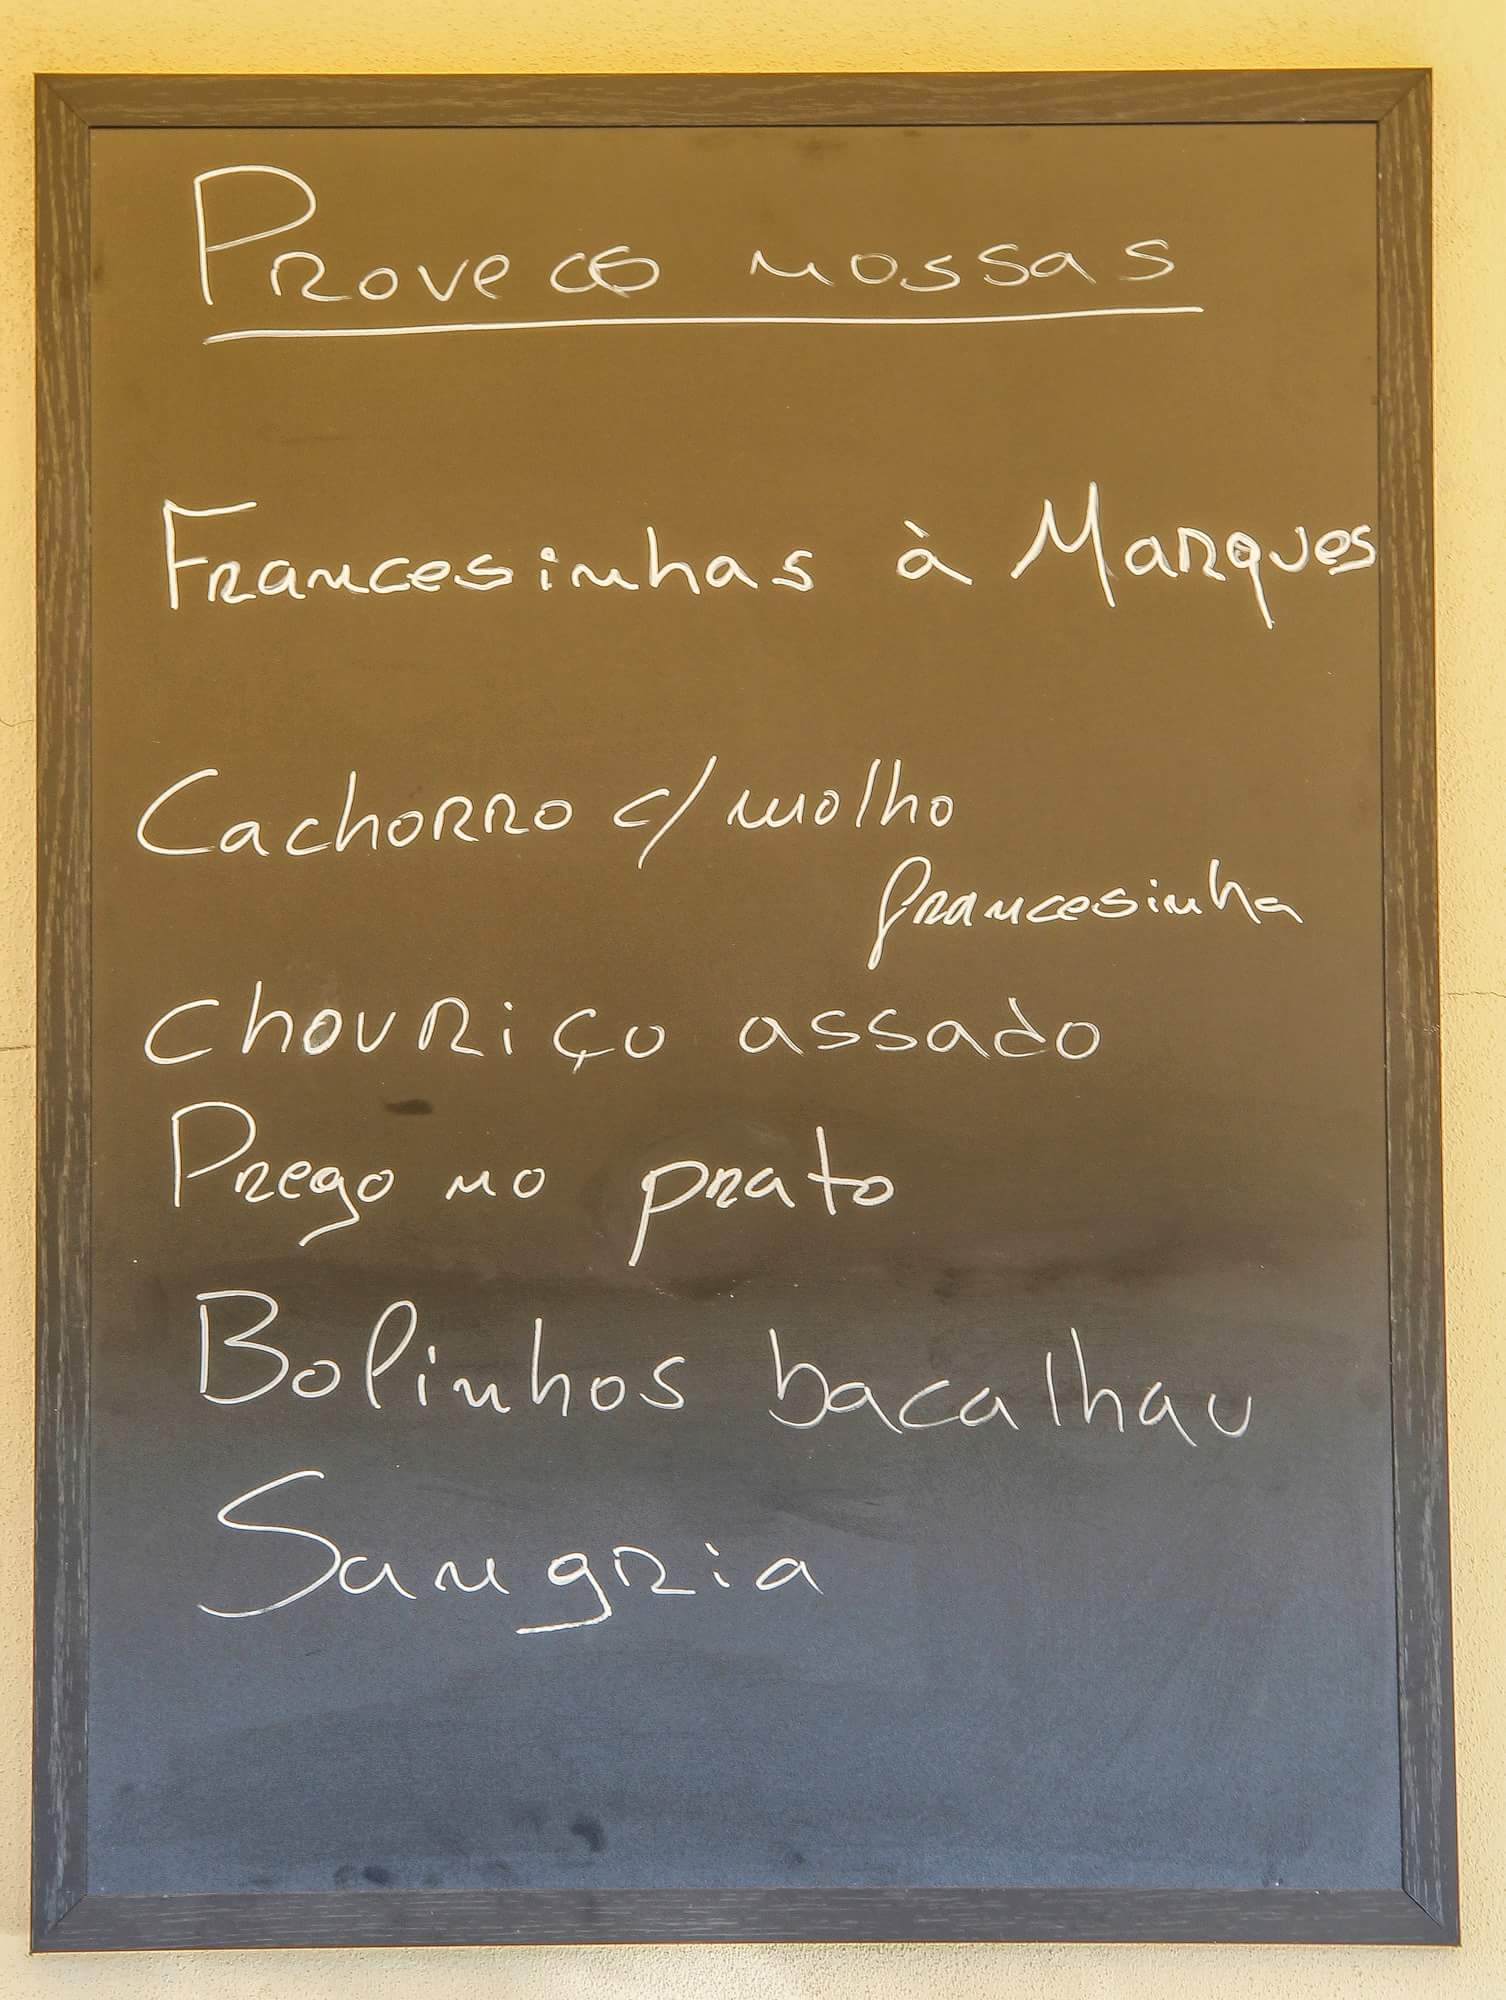 Provem as nossas
Francesinhas à Marques
Cachorro c/ molho
francesinha
Chouriço assado
Prego no prato
Bolinhos bacalhau
Sangria